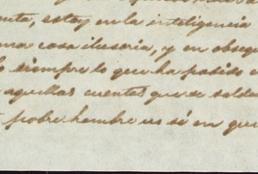 enta, estoy en la inteligencia
una cosa ilusoria, y en obseq
siempre lo que ha podido
aquellas cuentas que se salda
pobre hombre no sé en que